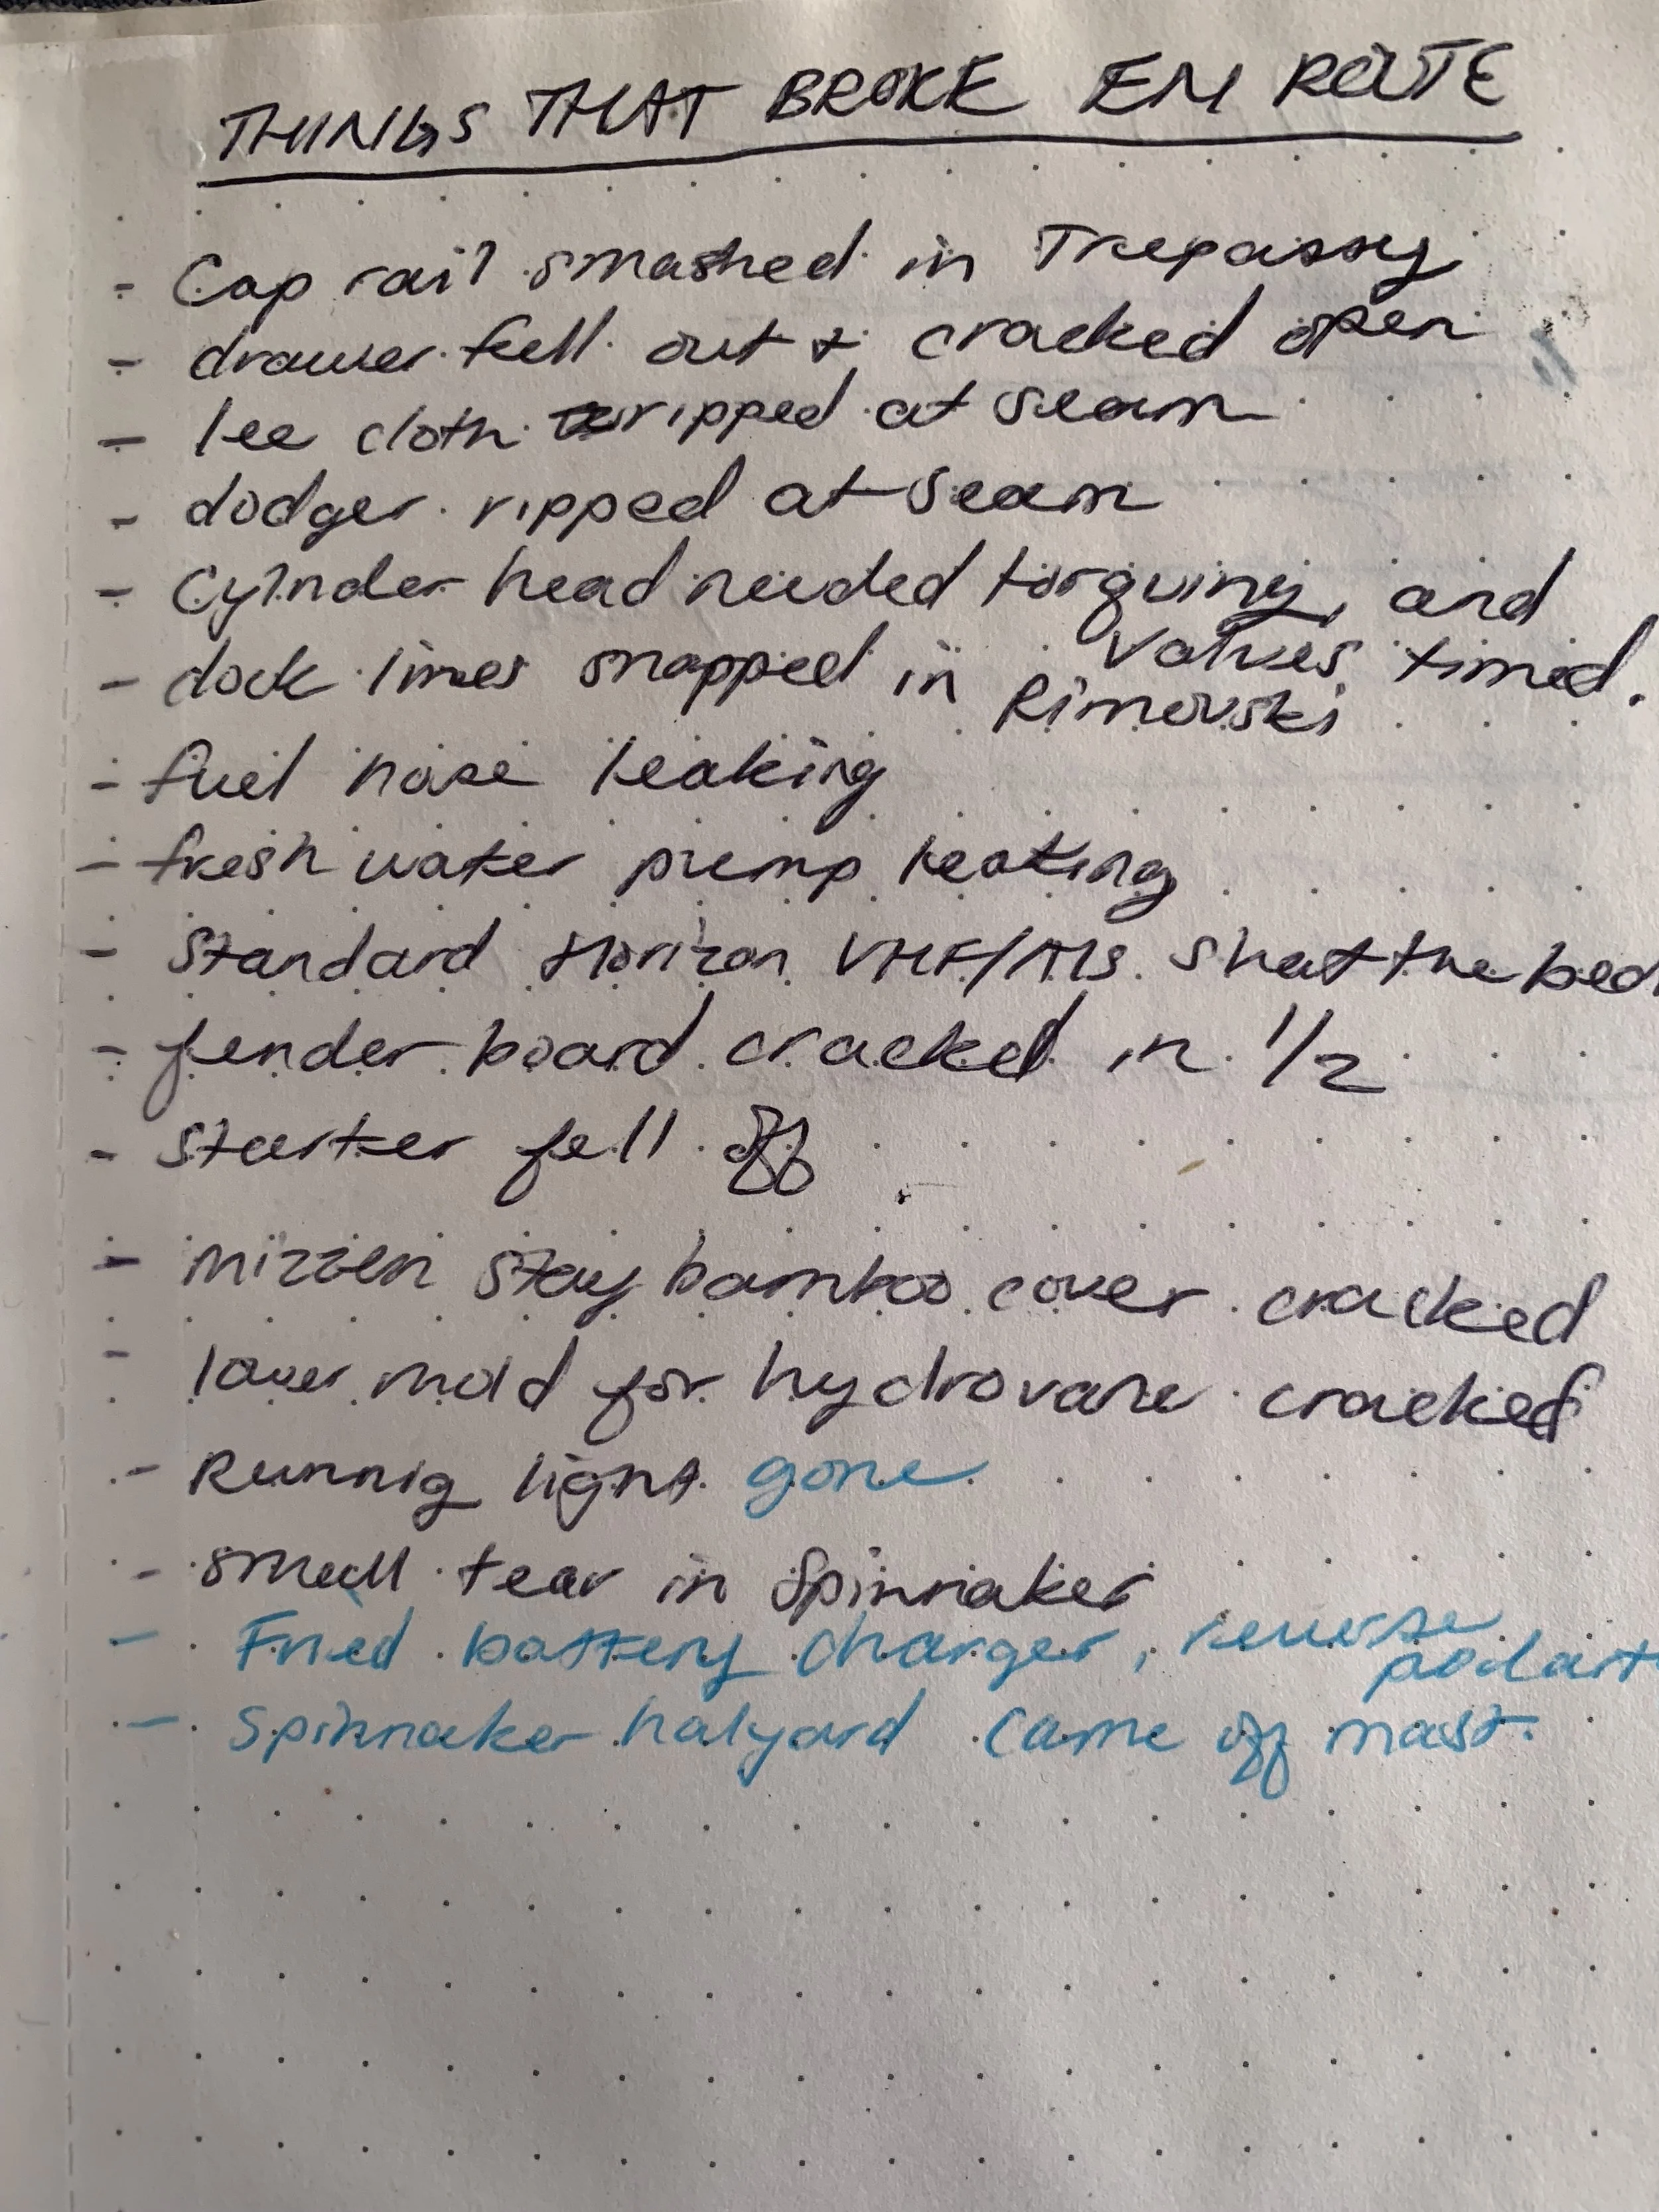 THINGS THAT BROKE EN ROUTE
- Cap rail smashed in Trepassy
- drawer fell out & cracked open
- lee cloth ripped at seam
- dodger ripped at seam
- Cylinder head needed torquing, and
valves timed.
- dock lines snapped in
Rimouski
- fuel hose leaking
- fresh water pump leaking
- Standard Horizon VHF/AIS shat the bed
- fender board cracked in 1/2
- Starter fell off
- mizzen stay bamboo cover cracked
- lower mold for hydrovane cracked
- Runnig light gone
- small tear in Spinnaker
- Fried battery charger, reverse
polarit
- Spinnaker halyard came off mast.